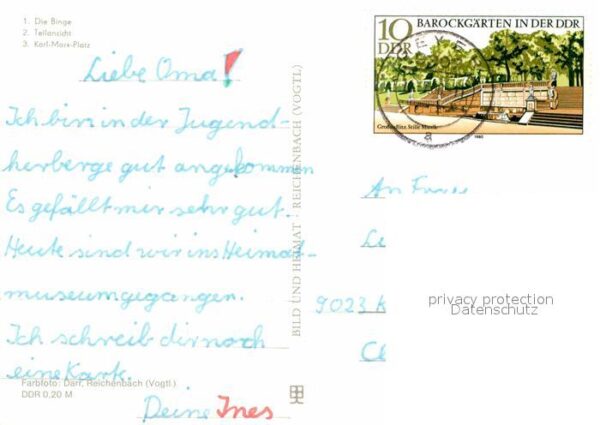 1. Die Binge
2. Teilansicht
3. Karl-Marx-Platz
Liebe Oma!
Ich bin in der Jugend-
herberge gut angekommen
Es gefällt mir sehr gut.
Heute sind wir ins Heimat-
museum gegangen.
Ich schreib dir noch
eine Karte.
Deine Ines
Farbfoto: Darr, Reichenbach (Vogtl.)
DDR 0,20 M
BILD UND HEIMAT · REICHENBACH (VOGTL)
10
DDR
BAROCKGÄRTEN IN DER DDR
Großsedlitz, Stille Musik
1980
An
9023 K
privacy protection
Datenschutz